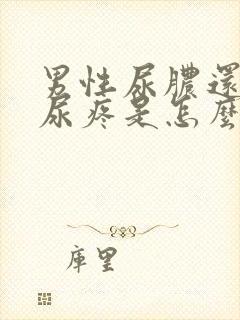 男性尿膿還
尿疼是怎麼
庫里